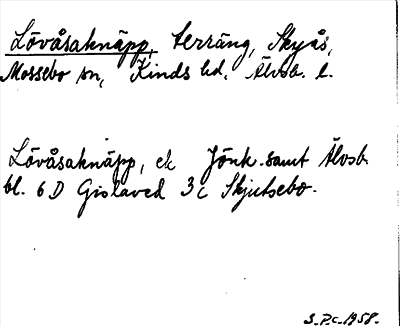 Lövåsaknäpp, terräng, Skyås,
Mossebo sn, Kinds hd, Älvsb. l.
Lövåsaknäpp, ek Jönk. samt Älvsb.
bl. 6 D Gislaved 3 c Skjutsebo.
S.P.c. 1958.